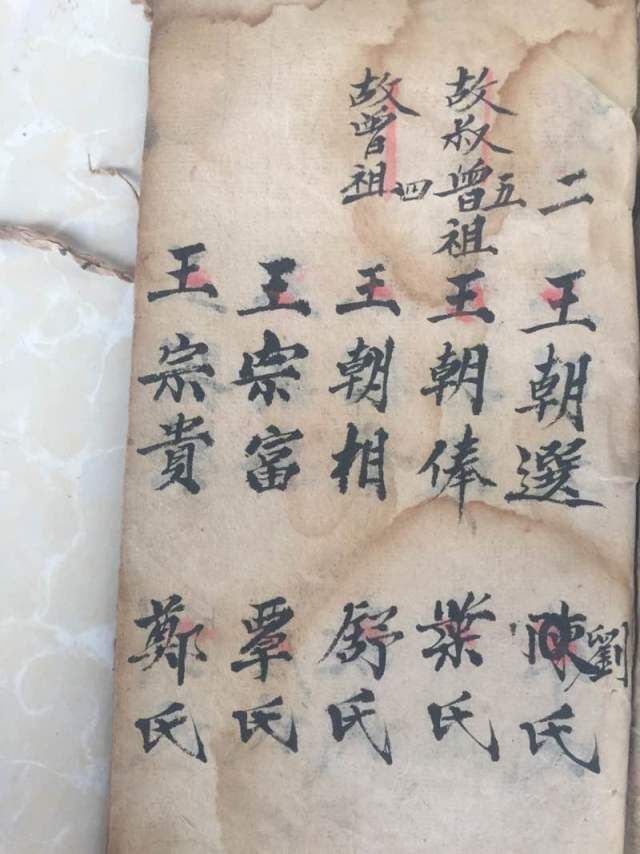 二王朝選陳劉氏
故叔曾祖五王朝俸葉氏
故曾祖四王朝相舒氏
王宗富覃氏
王宗貴鄭氏